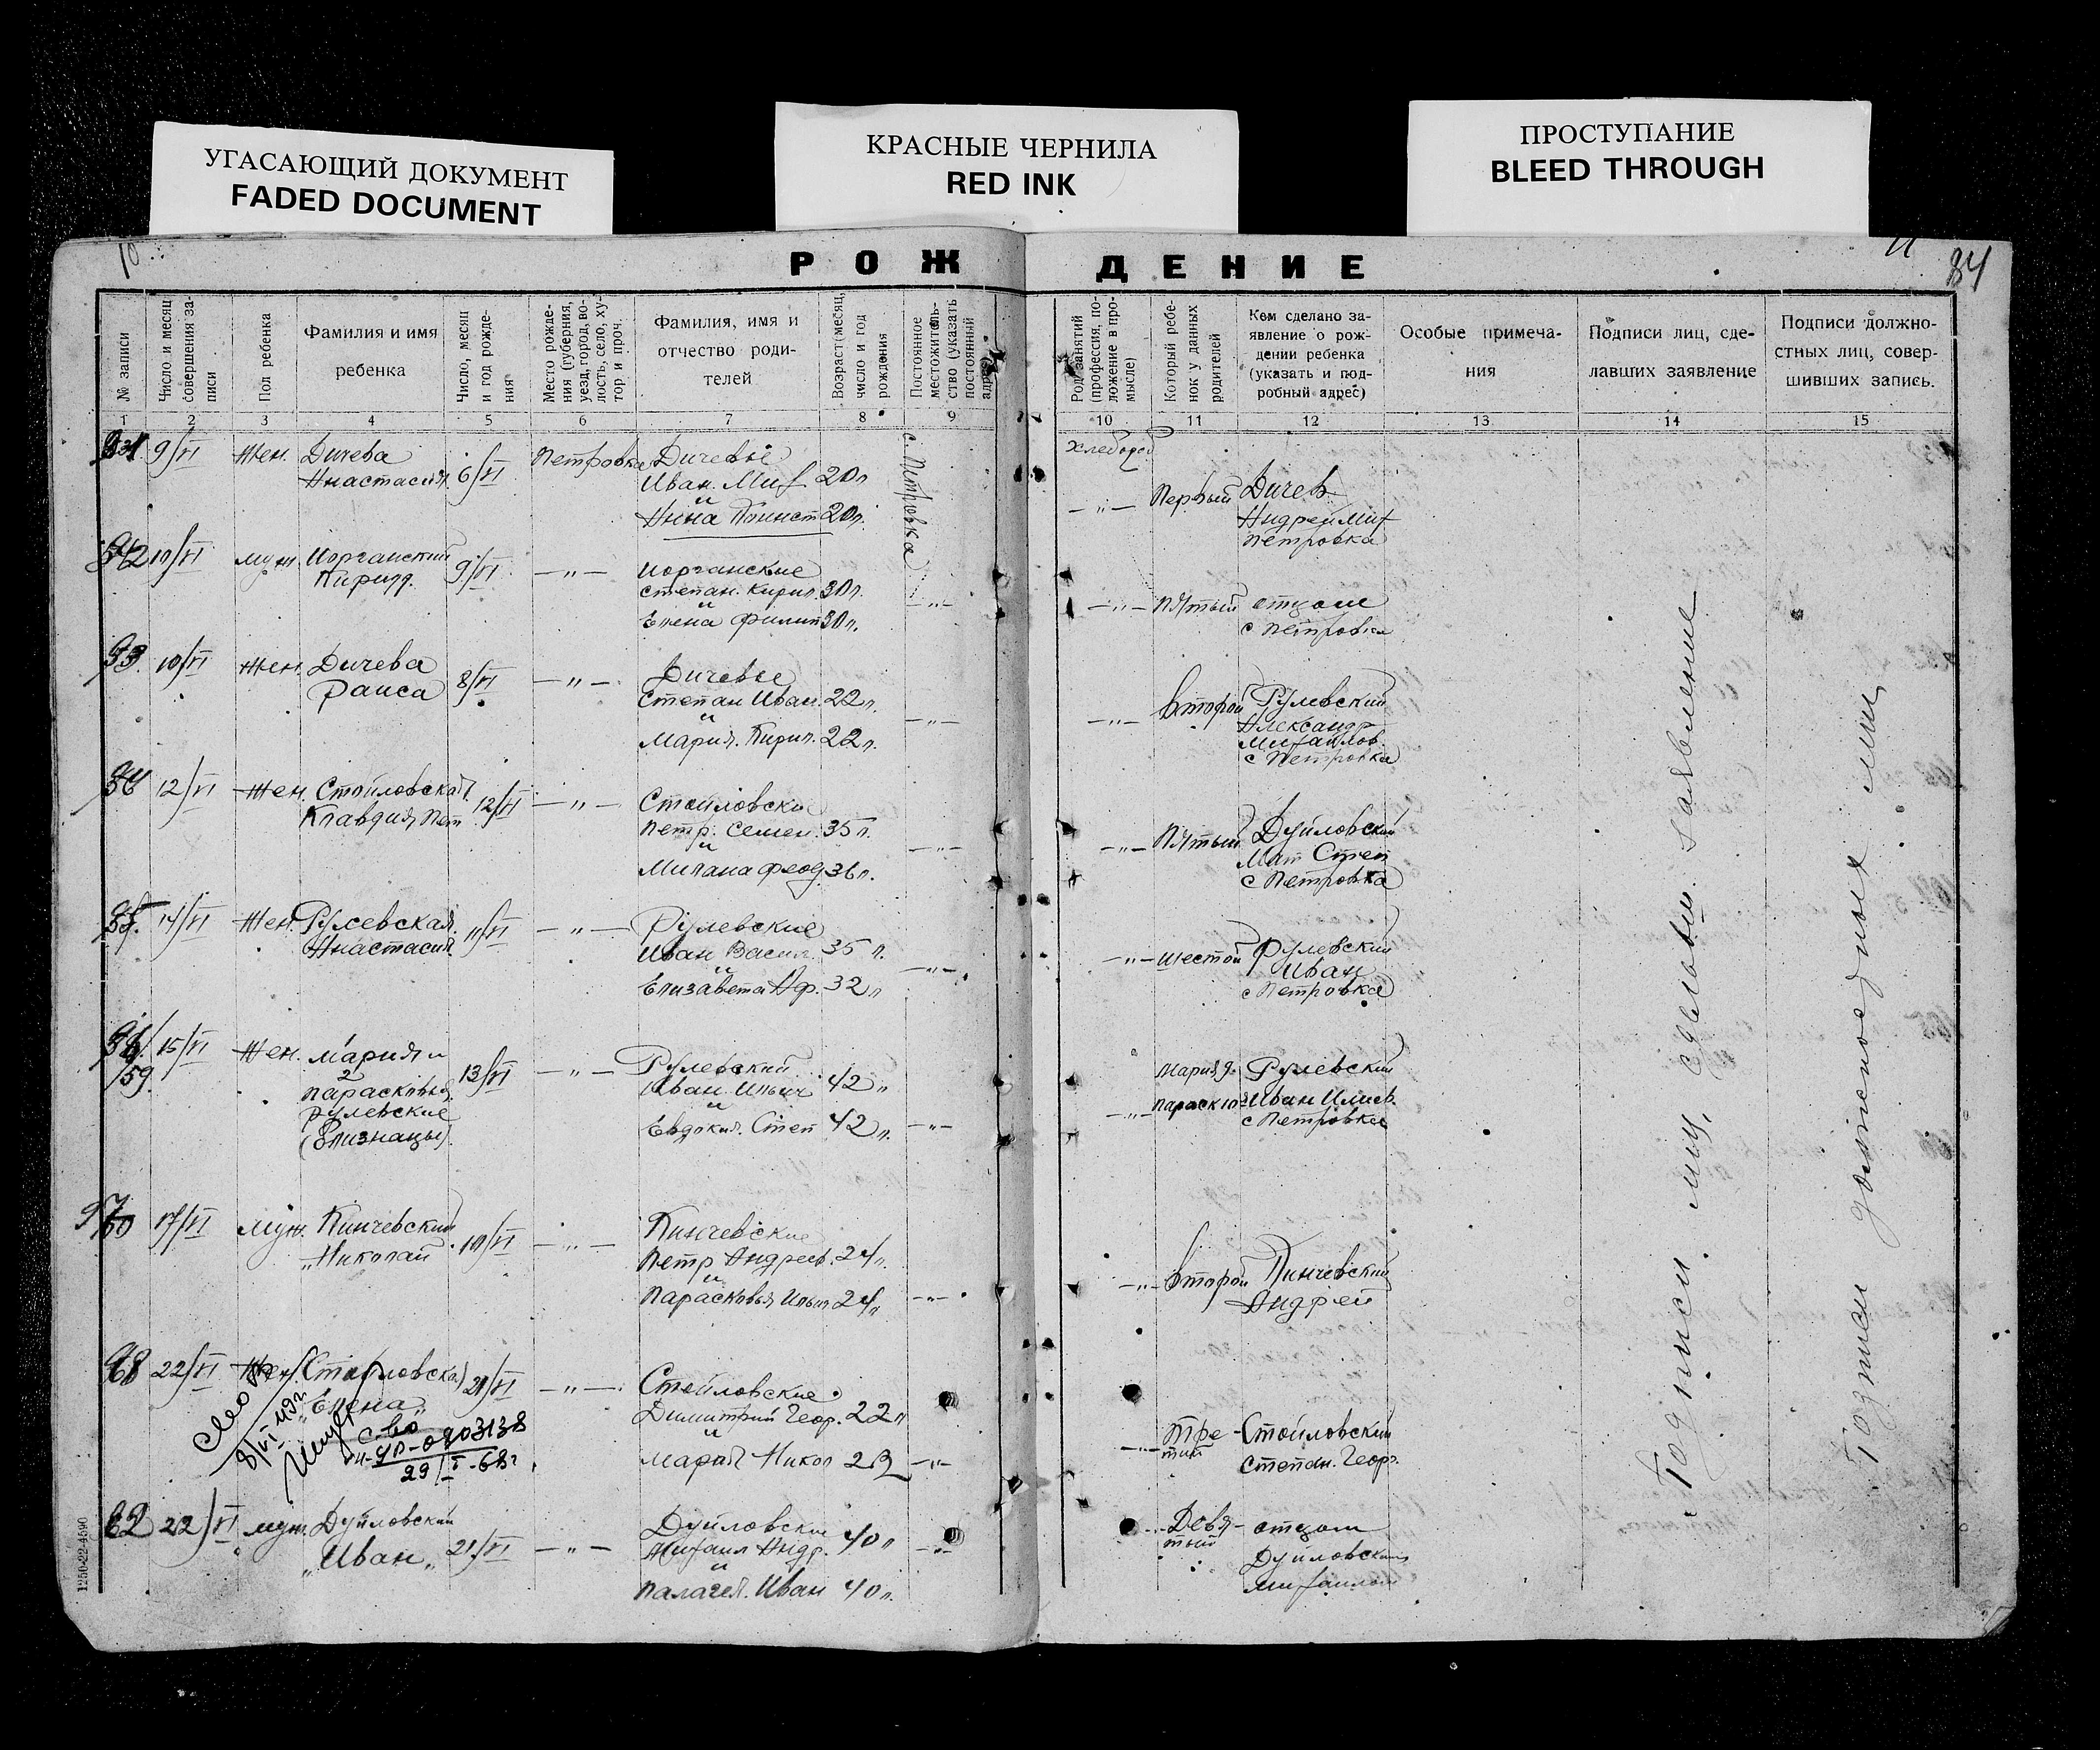 УГАСАЮЩИЙ ДОКУМЕНТ
FADED DOCUMENT
КРАСНЫЕ ЧЕРНИЛА
RED INK
ПРОСТУПАНИЕ
BLEED THROUGH
10
84
РОЖДЕНИЕ
№ записи
Число и месяц совершения записи
Пол ребенка
Фамилия и имя ребенка
Число, месяц и год рождения
Место рождения (губерния, уезд, город, волость, село, хутор и проч.
Фамилия, имя и отчество родителей
Возраст (месяц, число и год рождения
Постоянное местожительство (указать постоянный адрес)
Род занятий (профессия, положение в промысле)
Который ребенок у данных родителей
Кем сделано заявление о рождении ребенка (указать и подробный адрес)
Особые примечания
Подписи лиц, сделавших заявление
Подписи должностных лиц, совершивших запись.
1 2 3 4 5 6 7 8 9 10 11 12 13 14 15
9/VI Жен. Дичева Анастасия 6/VI Петровка
Дичевы
Иван Миф 20 л
и
Анна Конист 20 л.
с. Петровка
Хлебороб
Первый Дичев
Андрей Миф
Петровка
10/VI муж. Иорганский
9/VI — " —
Иорганские
Степан. Кирил. 30 л.
и
Елена Филип 30 л.
— " —
— " — Пятый отцом
с Петровка
93. 10/VI Жен. Дичева
Раиса 8/VI — " —
Дичевы
Степан Иван. 22 л.
и
Мария. Кирил. 22 л.
— " —
— " — Второй Рулевский
Александр
Михайлов.
с Петровка
12/VI Жен. Стойловская
Клавдия Пет 12/VI — " —
Стойловски
Петр. Семен. 35 л.
и
Милана Феод 36 л.
— " —
— " — Пятый Дуйловский
Мат Степ
с Петровка
14/VI Жен. Рулевская
Анастасия 11/VI — " —
Рулевские
Иван Васил. 35 л.
и
Елизавета Аф. 32 л
— " —
— " — шестой Рулевский
Иван
с Петровка
59. 15/VI Жен. 1 Мария и
2
Парасковья
Рулевские
(Близнацы) 13/VI — " —
Рулевский
Иван Ильич 42 "
и
Евдокия. Степ 42 л.
— " —
Мария 9. Рулевский
— " — Параск 10 Иван Илиев.
с Петровка
97 17/VI муж. Кинчевский
„Николай 10/VI — " —
Кинчевские
Петр Андреев. 24 л.
и
Парасковья Ильин 24 л
— " —
— " — Второй Кинчевский
Андрей
98 22/VI Жен. Стойловска
„Елена„ 21/VI — " —
Стойловские
Димитрий Геор. 22 л
и
Мария Никол
— " —
с-во
8/VI
29/I-68г
— " — Третий Стойловский
Степан. Геор.
22/VI муж. Дуйловский
„Иван„ 21/VI — " —
Дуйловски
Михаил Андр. 40 л
и
Палагея. Иван 40 л.
— " —
Девятый отцом
Дуйловский
Михаилом
Подписи лиц, сделавш. заявление
Подписи должностных лиц
1250-22-4590